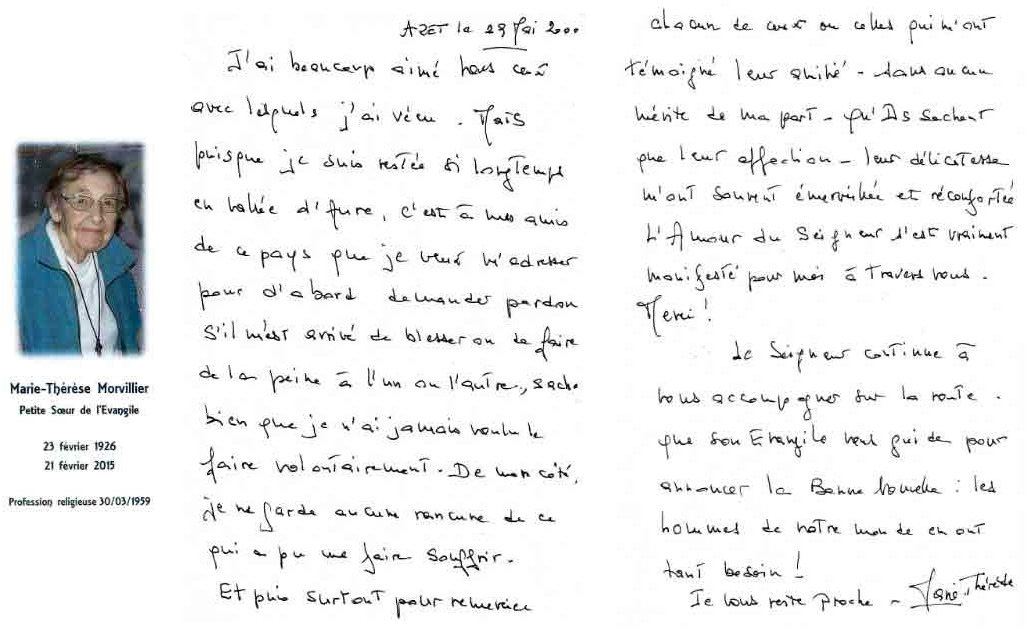 Marie-Thérèse Morvillier
Petite Sœur de l'Evangile
23 février 1926
21 février 2015
Profession religieuse 30/03/1959
AZET le 29 Mai 2000
J'ai beaucoup aimé tous ceux
avec lesquels j'ai vécu. Mais
puisque je suis restée si longtemps
en vallée d'Aure, c'est à mes amis
de ce pays que je veux m'adresser
pour d'abord demander pardon
S'il m'est arrivé de blesser ou de faire
de la peine à l'un ou l'autre, sache
bien que je n'ai jamais voulu le
faire volontairement. De mon côté,
je ne garde aucune rancune de ce
qui a pu me faire souffrir.
Et puis surtout pour remercier
chacun de ceux ou celles qui m'ont
témoigné leur amitié - sans aucun
mérite de ma part - qu'Ils sachent
que leur affection - leur délicatesse
m'ont souvent émerveillée et réconfortée
L'Amour du Seigneur s'est vraiment
manifesté pour moi à travers vous.
Merci !
Le Seigneur continue à
vous accompagner sur la route.
que son Evangile vous guide pour
annoncer la Bonne Nouvelle : les
hommes de notre monde en ont
tant besoin !
Je vous reste proche - Marie-Thérèse